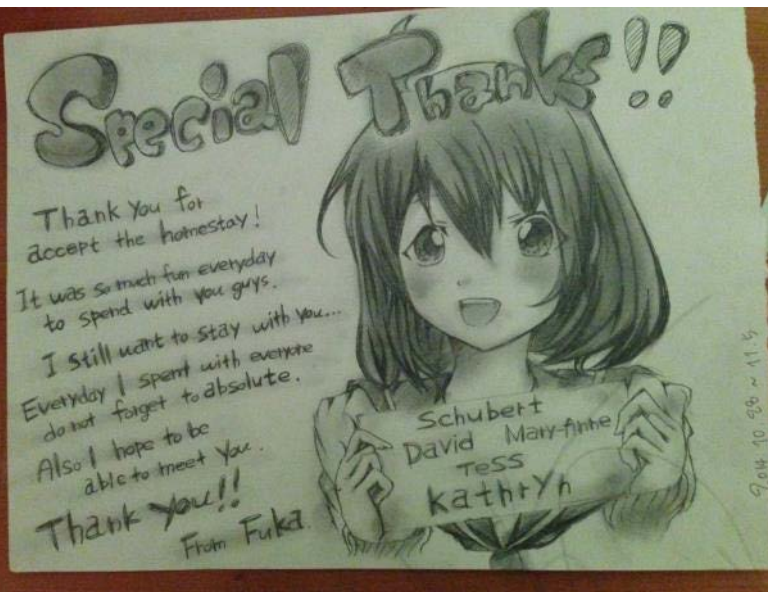 Special Thanks!!
Thank You for
accept the homestay!
It was so much fun everyday
to spend with you guys.
I still want to stay with you...
Everyday I spent with everyone
do not forget to absolute.
Also I hope to be
able to meet You.
Thank You!!
From Fuka.
Schubert
David Mary-Anne
Tess
Kathryn
2014. 10. 28 ~ 11.5